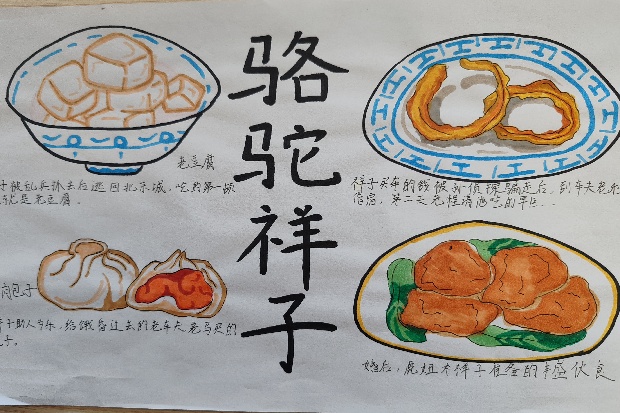 骆驼祥子
老豆腐
子被乱兵抓去后逃回北京城,吃的第一顿
就是老豆腐.
祥子买车的钱被孙侦探骗走后,到车夫老
第二天老程请他吃的早
肉包子
子助人为乐,给饿昏过去的老车夫老马买的
子.
婚后,虎妞为祥子准备的丰盛伙食